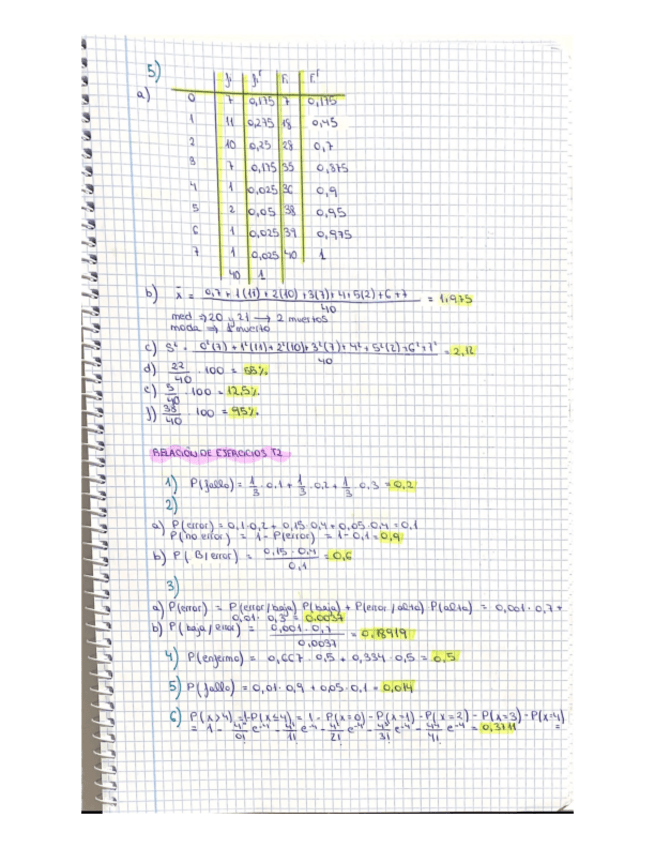 5)
fi fi^r Fi F^r
a) 0 7 0,175 7 0,175
1 11 0,275 18 0,45
2 10 0,25 28 0,7
3 7 0,175 35 0,875
4 1 0,025 36 0,9
5 2 0,05 38 0,95
6 1 0,025 39 0,975
7 1 0,025 40 1
40 1
b) x̄ = 0,7 + 1(11) + 2(10) + 3(7) + 4 + 5(2) + 6 + 7 / 40 = 1,975
med → 20 y 21 → 2 muertos
moda → 1 muerto
c) S² = 0²(7) + 1²(11) + 2²(10) + 3²(7) + 4² + 5²(2) + 6² + 7² / 40 = 2,12
d) 22/40 · 100 = 55%
e) 5/40 · 100 = 12,5%
f) 38/40 · 100 = 95%
RELACIÓN DE EJERCICIOS T2
1) P(fallo) = 1/3 · 0,1 + 1/3 · 0,2 + 1/3 · 0,3 = 0,2
2)
a) P(error) = 0,1·0,2 + 0,15·0,4 + 0,05·0,4 = 0,1
P(no error) = 1 - P(error) = 1 - 0,1 = 0,9
b) P(B/error) = 0,15 · 0,4 / 0,1 = 0,6
3)
a) P(error) = P(error/baja) P(baja) + P(error/alta) · P(alta) = 0,001 · 0,7 +
0,01 · 0,3 = 0,0037
b) P(baja/error) = 0,001 · 0,7 / 0,0037 = 0,18919
4) P(enfermo) = 0,667 · 0,5 + 0,334 · 0,5 = 0,5
5) P(fallo) = 0,01 · 0,9 + 0,05 · 0,1 = 0,014
6) P(x>4) = 1-P(x≤4) = 1 - P(x=0) - P(x=1) - P(x=2) - P(x=3) - P(x=4) =
= 1 - 4⁰/0! e⁻⁴ - 4¹/1! e⁻⁴ - 4²/2! e⁻⁴ - 4³/3! e⁻⁴ - 4⁴/4! e⁻⁴ = 0,3711